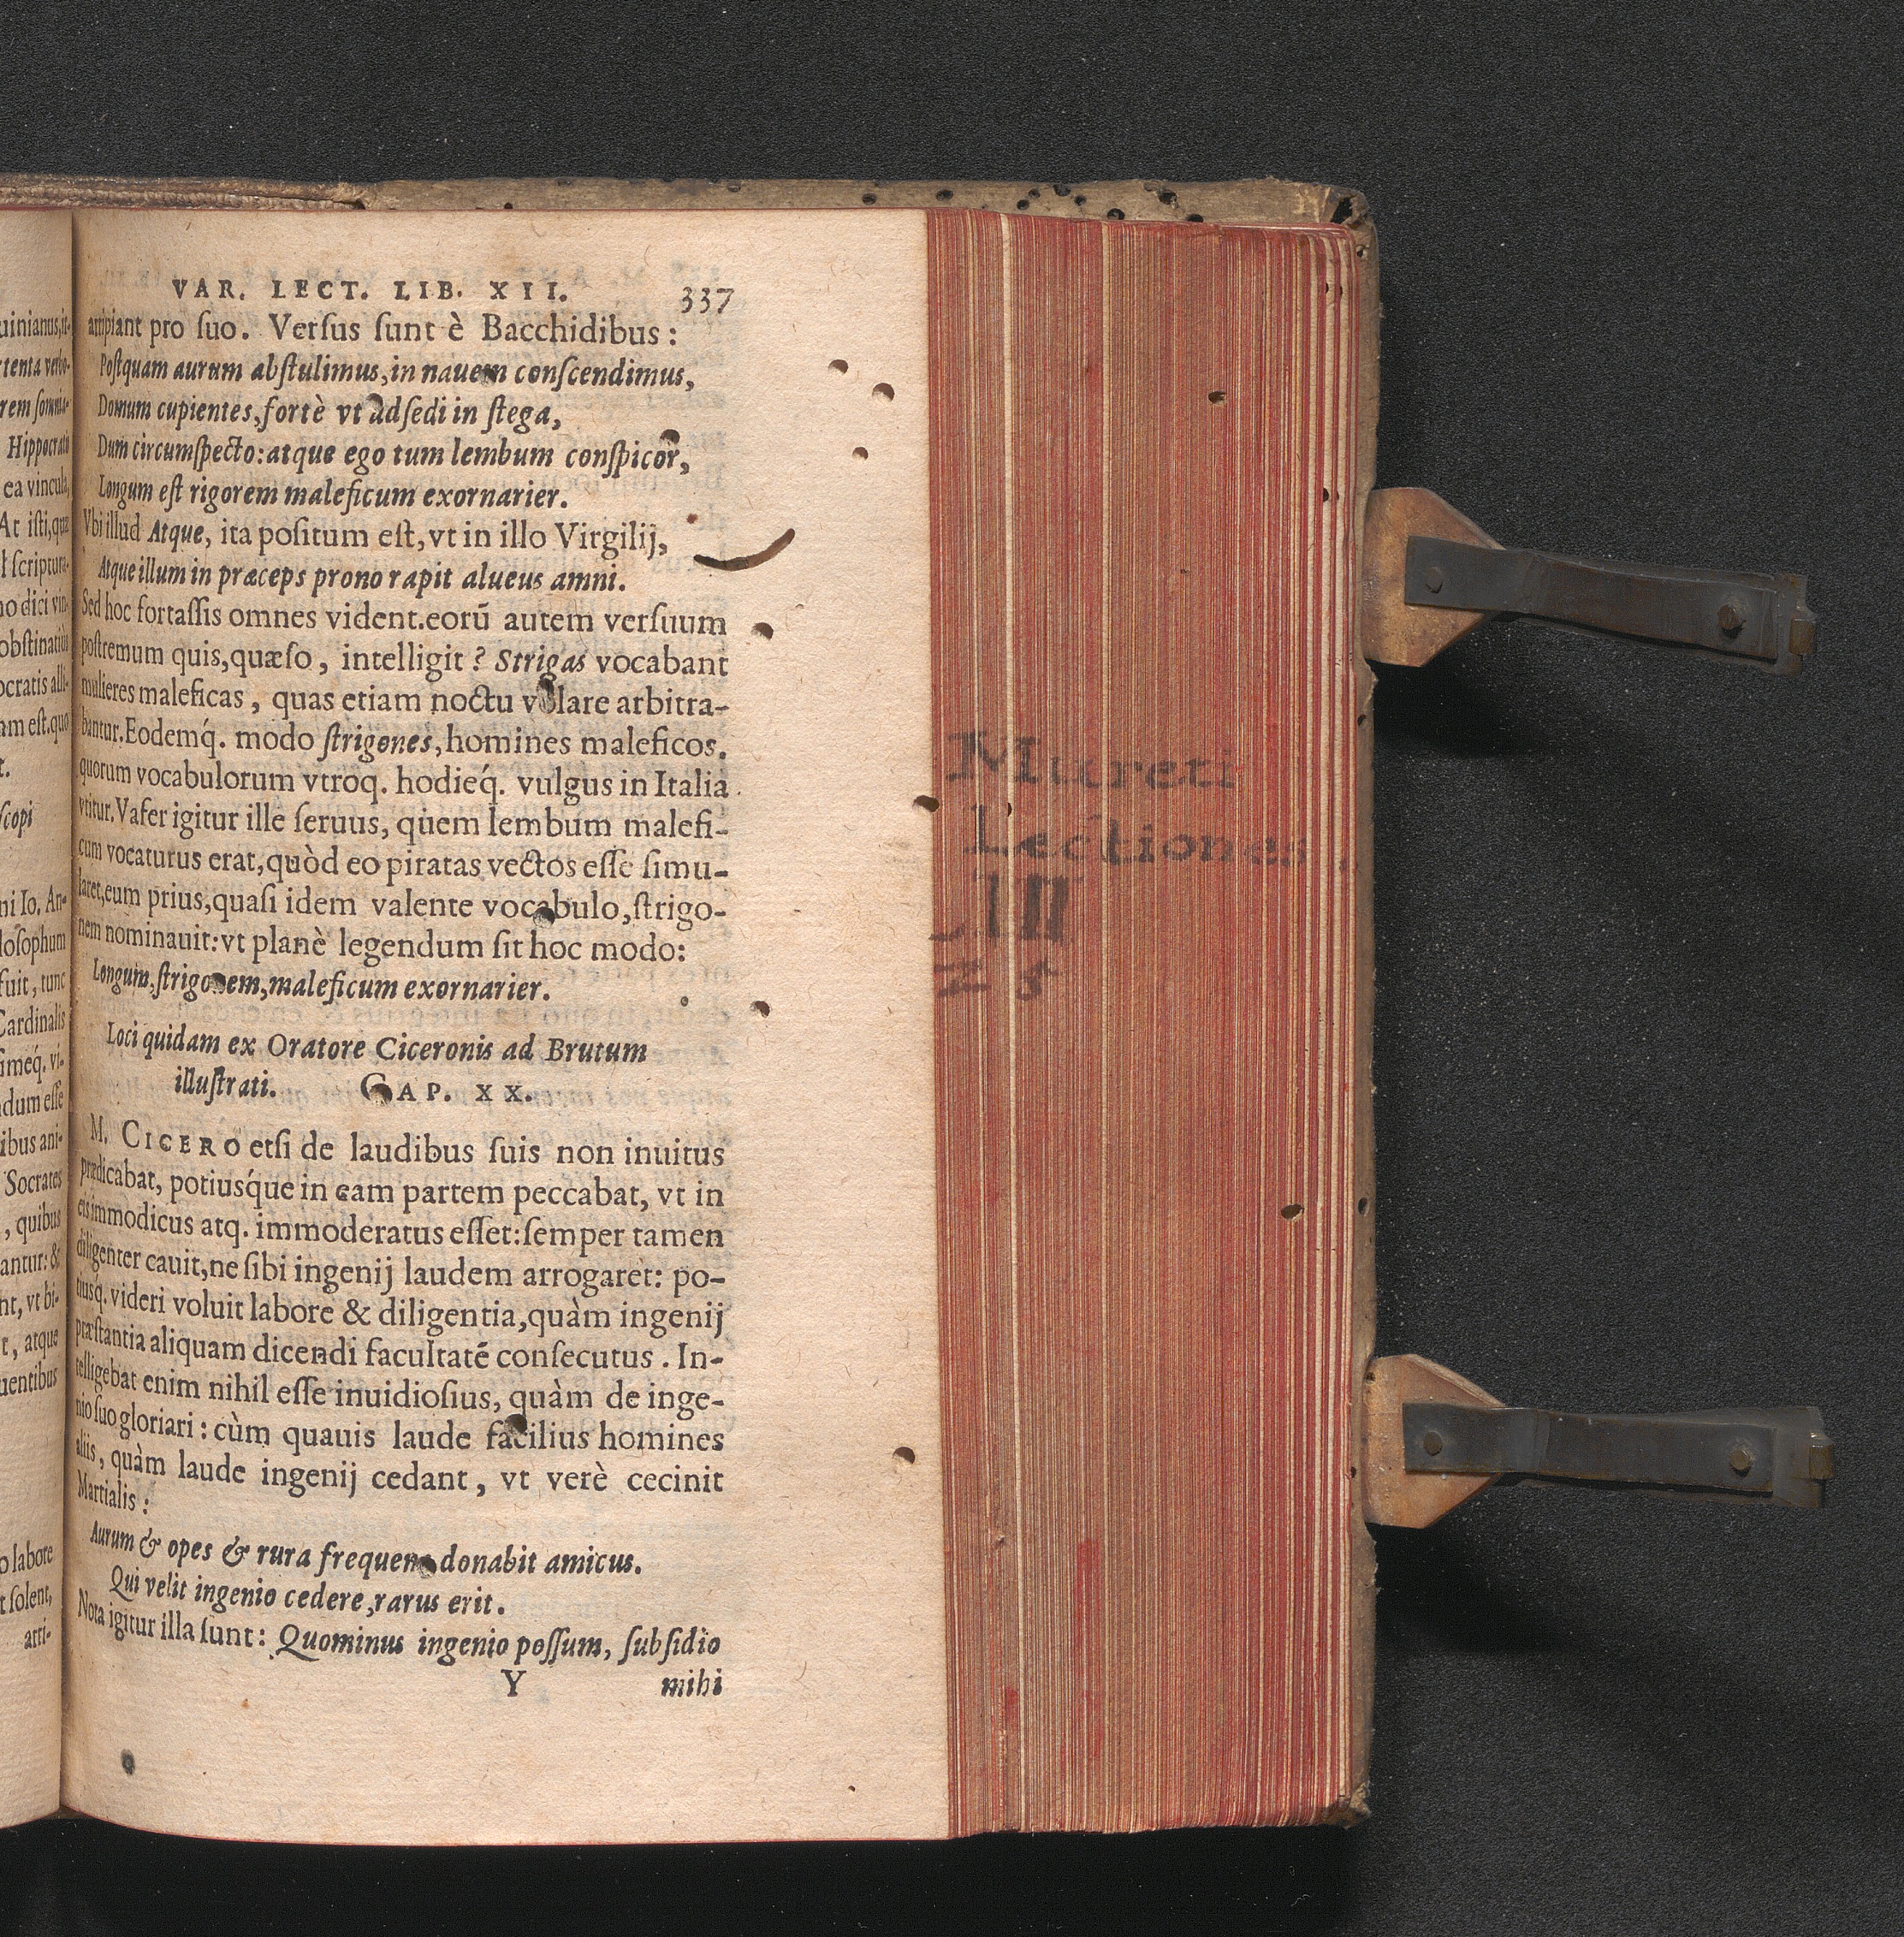 uinianus,it-
rtenta verbo-
rem somnia-
Hippocratis
ea vincula,
At isti,quæ
scriptura-
no dici vin-
obstinatiùs
ocratis alli-
am est.quo
t.
scopi
ni Io. An-
losophum
fuit, tunc
Cardinalis
simeq́. vi-
ndum esse
ibus ani-
Socrates
, quibus
antur: &
nt, vt bi-
t, atque
uentibus
o labore
t solent,
arri-
VAR. LECT. LIB. XII. 337
arripiant pro suo. Versus sunt è Bacchidibus:
Postquam aurum abstulimus,in nauem conscendimus,
Domum cupientes,fortè vt adsedi in stega,
Dum circumspecto:atque ego tum lembum conspicor,
Longum est rigorem maleficum exornarier.
Vbi illud Atque, ita positum est,vt in illo Virgilij,
Atque illum in præceps prono rapit alueus amni.
Sed hoc fortassis omnes vident.eorū autem versuum
postremum quis,quæso, intelligit? Strigas vocabant
mulieres maleficas, quas etiam noctu volare arbitra-
bantur.Eodemq́. modo strigones,homines maleficos.
quorum vocabulorum vtroq. hodieq́. vulgus in Italia
vtitur.Vafer igitur ille seruus, quem lembum malefi-
cum vocaturus erat,quòd eo piratas vectos esse simu-
laret,eum prius,quasi idem valente vocabulo,strigo-
nem nominauit:vt planè legendum sit hoc modo:
Longum,strigonem,maleficum exornarier.
Loci quidam ex Oratore Ciceronis ad Brutum
illustrati. CAP. XX.
M. CICERO etsi de laudibus suis non inuitus
prædicabat, potiusq́ue in eam partem peccabat, vt in
eis immodicus atq. immoderatus esset:semper tamen
diligenter cauit,ne sibi ingenij laudem arrogaret: po-
tiusq́. videri voluit labore & diligentia,quàm ingenij
præstantia aliquam dicendi facultatē consecutus. In-
telligebat enim nihil esse inuidiosius, quàm de inge-
nio suo gloriari: cùm quauis laude facilius homines
aliis, quàm laude ingenij cedant, vt verè cecinit
Martialis:
Aurum & opes & rura frequens donabit amicus.
Qui velit ingenio cedere,rarus erit.
Nota igitur illa sunt: Quominus ingenio possum, subsidio
Y mihi
Mureti
Lectiones